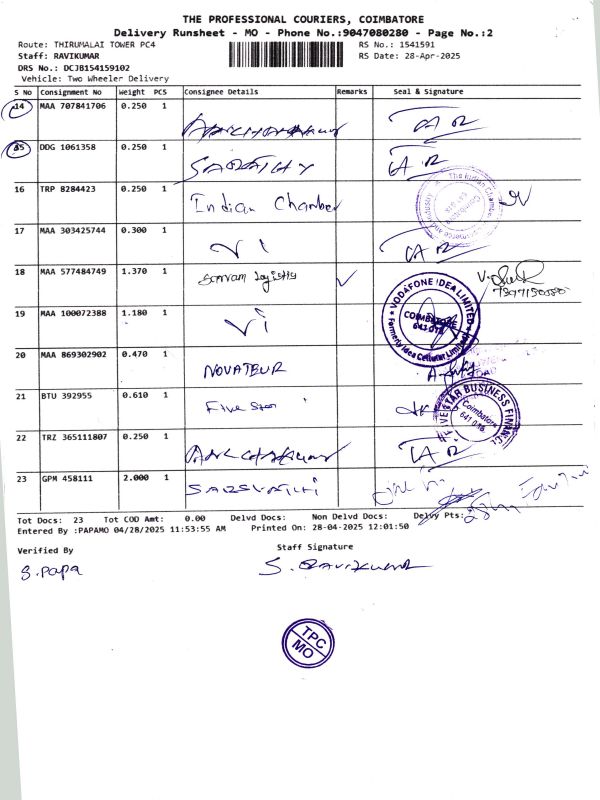 THE PROFESSIONAL COURIERS, COIMBATORE
Delivery Runsheet - MO - Phone No.:9047080280 - Page No.:2
Route: THIRUMALAI TOWER PC4 RS No.: 1541591
Staff: RAVIKUMAR RS Date: 28-Apr-2025
DRS No.: DCJB154159102
Vehicle: Two Wheeler Delivery
S No Consignment No Weight PCS Consignee Details Remarks Seal & Signature
14 MAA 707841706 0.250 1
15 DDG 1061358 0.250 1
16 TRP 8284423 0.250 1 Indian Chamber
17 MAA 303425744 0.300 1 Vi
18 MAA 577484749 1.370 1
19 MAA 100072388 1.180 1 Vi VODAFONE IDEA LIMITED COIMBATORE 641 018 (Formerly Idea Cellular Limited)
20 MAA 869302902 0.470 1 NOVATEUR
21 BTU 392955 0.610 1 Five Star FIVE STAR BUSINESS FINANCE Coimbatore 641 018
22 TRZ 365111807 0.250 1
23 GPM 458111 2.000 1
Tot Docs: 23 Tot COD Amt: 0.00 Delvd Docs: Non Delvd Docs: Delvy Pts:
Entered By :PAPAMO 04/28/2025 11:53:55 AM Printed On: 28-04-2025 12:01:50
Verified By Staff Signature
S. Papa S. Ravikumar
TPC
MO